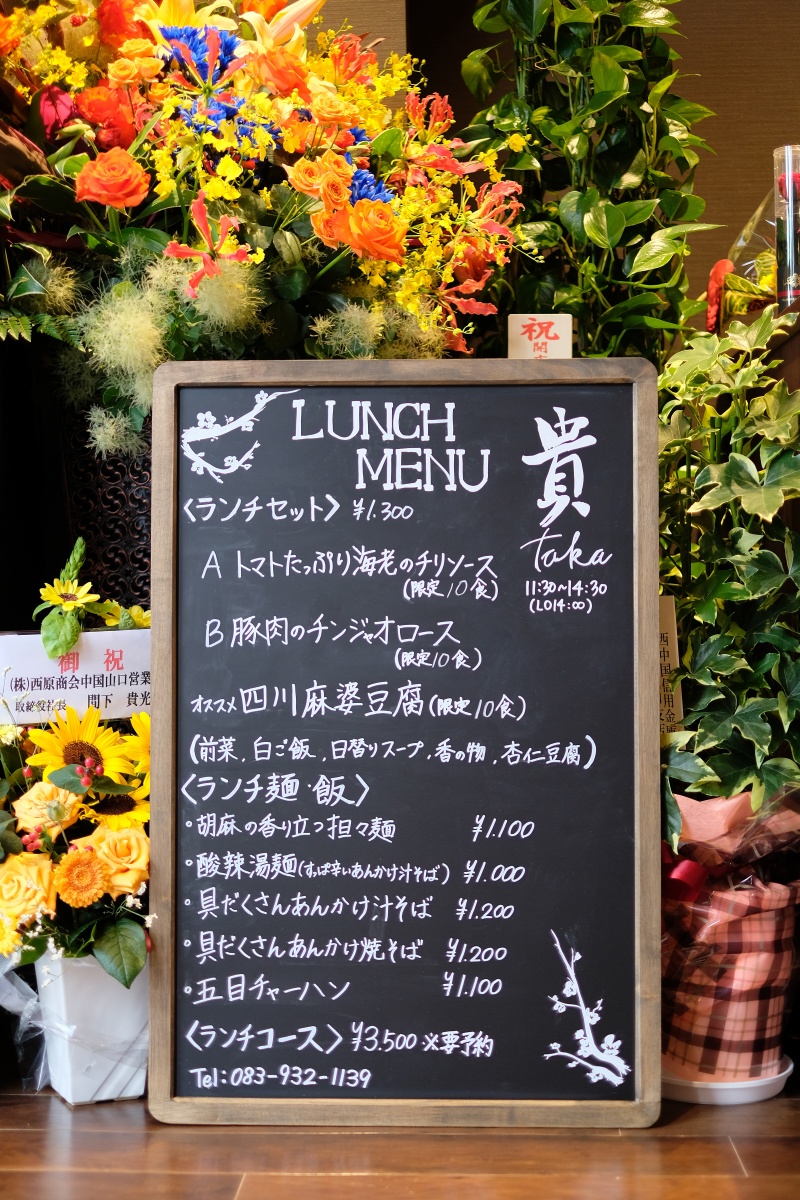 祝
開
LUNCH
MENU
貴
taka
11:30~14:30
(LO14:00)
〈ランチセット〉 ¥1.300
A トマトたっぷり海老のチリソース
(限定10食)
B 豚肉のチンジャオロース
(限定10食)
オススメ四川麻婆豆腐(限定10食)
(前菜,白ご飯,日替りスープ,香の物,杏仁豆腐)
〈ランチ麺・飯〉
・胡麻の香り立つ担々麺 ¥1.100
・酸辣湯麺(すっぱ辛いあんかけ汁そば) ¥1.000
・具だくさんあんかけ汁そば ¥1.200
・具だくさんあんかけ焼そば ¥1.200
・五目チャーハン ¥1.100
〈ランチコース〉¥3.500 ※要予約
Tel:083-932-1139
御祝
(株)西原商会中国山口営業
取締役若長 間下 貴光
西中国信用金